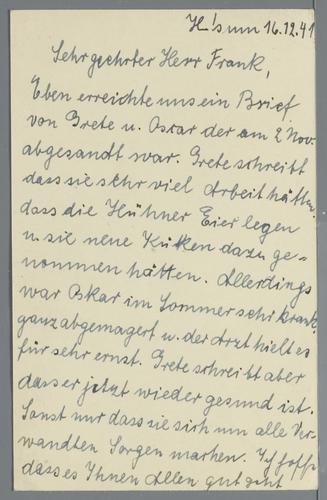 H'sum 16.12.41
Sehr geehrter Herr Frank,
Eben erreichte uns ein Brief
von Grete u. Oscar der am 2 Nov.
abgesandt war. Grete schreibt
dass sie sehr viel Arbeit hätten,
dass die Hühner Eier legen
u. sie neue Küken dazu ge-
nommen hätten. Allerdings
war Oskar im Sommer sehr krank,
ganz abgemagert u. der Arzt hielt es
für sehr ernst. Grete schreibt aber
dass er jetzt wieder gesund ist.
Sonst nur dass sie sich um alle Ver-
wandten Sorgen machen. Ich hoffe
dass es Ihnen Allen gut geht